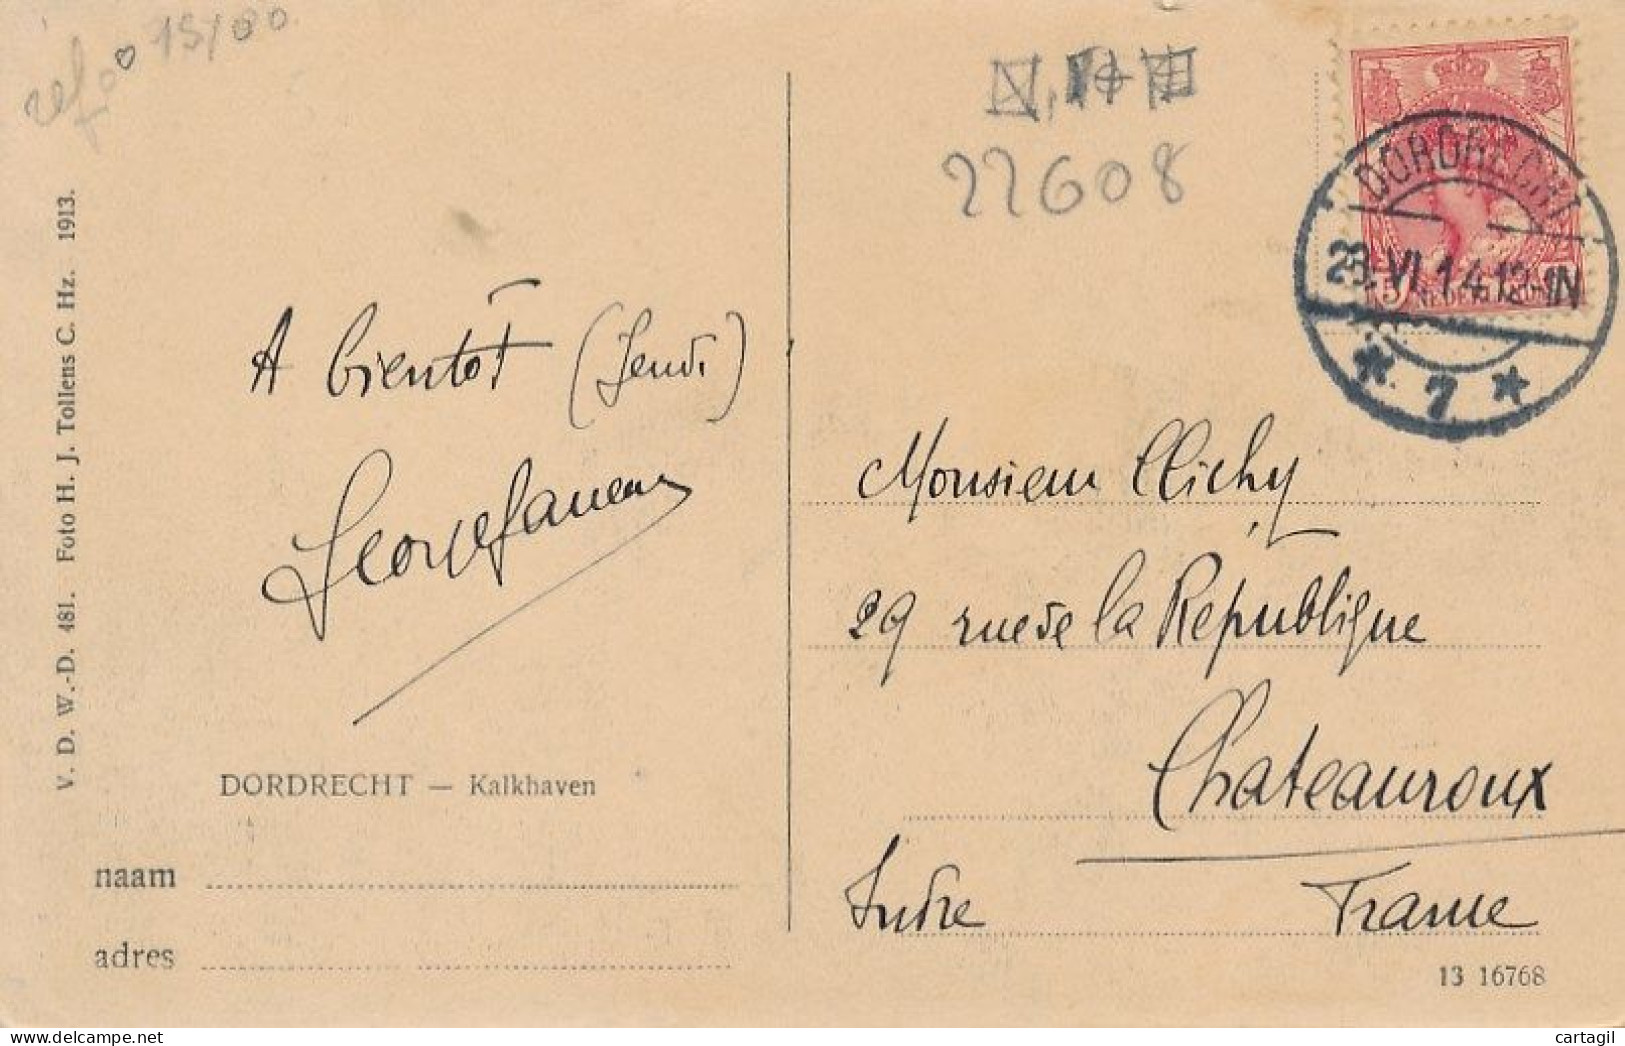 ref 15/00
22608
DORDRECHT
23.VI.14.12-1N
7
5 NEDERLAND
V. D. W.-D. 481. Foto H. J. Tollens C. Hz. 1913.
A bientôt (Jeudi)
DORDRECHT — Kalkhaven
naam
adres
Monsieur Clichy
29 rue de la République
Chateauroux
Indre France
13 16768
cartagil